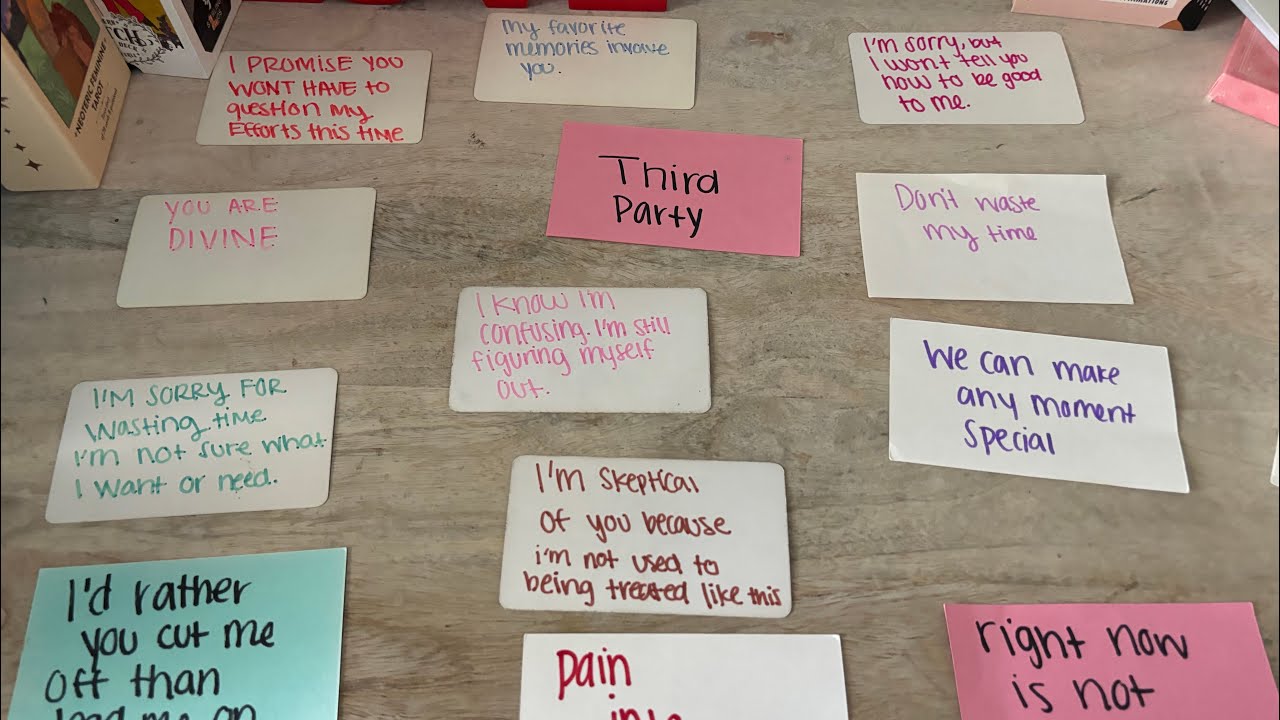 NEOTERIC FEMININE
TAROT
I PROMISE YOU
WONT HAVE TO
question my
Efforts this time
My favorite
memories involve
you.
I'm sorry, but
I won't tell you
how to be good
to me.
Third
Party
YOU ARE
DIVINE
Don't waste
my time
I know I'm
confusing. I'm still
figuring myself
out.
We can make
any moment
special
I'M SORRY FOR
wasting time
I'm not sure what
I want or need.
I'm skeptical
of you because
i'm not used to
being treated like this
I'd rather
you cut me
off than
lead me on
pain
into
right now
is not